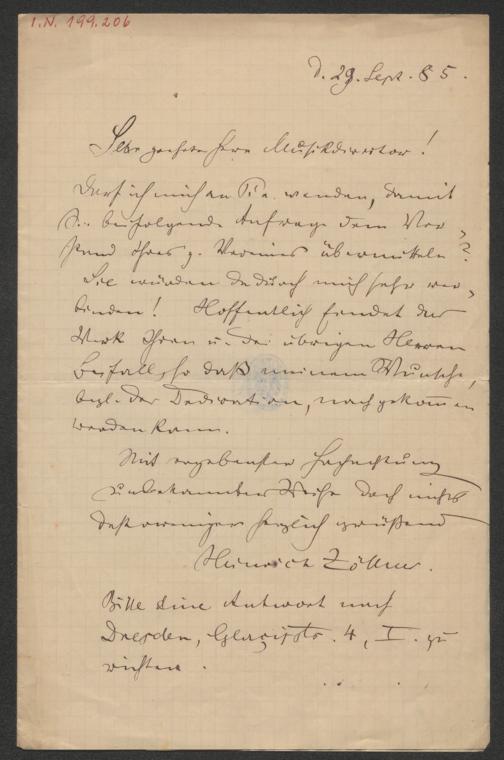 I.N. 199.206
d. 29. Sept. 85.
Sehr geehrter Herr Musikdirector!
Darf ich mich an Sie wenden, damit
Sie beifolgende Anfrage dem Vor-
stand Ihres g. Vereines übermitteln?
Sie würden dadurch mich sehr ver-
binden! Hoffentlich findet das
Werk Ihren u. der übrigen Herren
Beifall, so daß meinem Wunsche,
bezl. der Dedication, nachgekommen
werden kann.
Mit ergebenster Hochachtung
unbekannter Weise doch nichts
destoweniger herzlich grüßend
Heinrich Zöllner.
Bitte Antwort nach
Dresden, Glacisstr. 4, I. zu
richten.